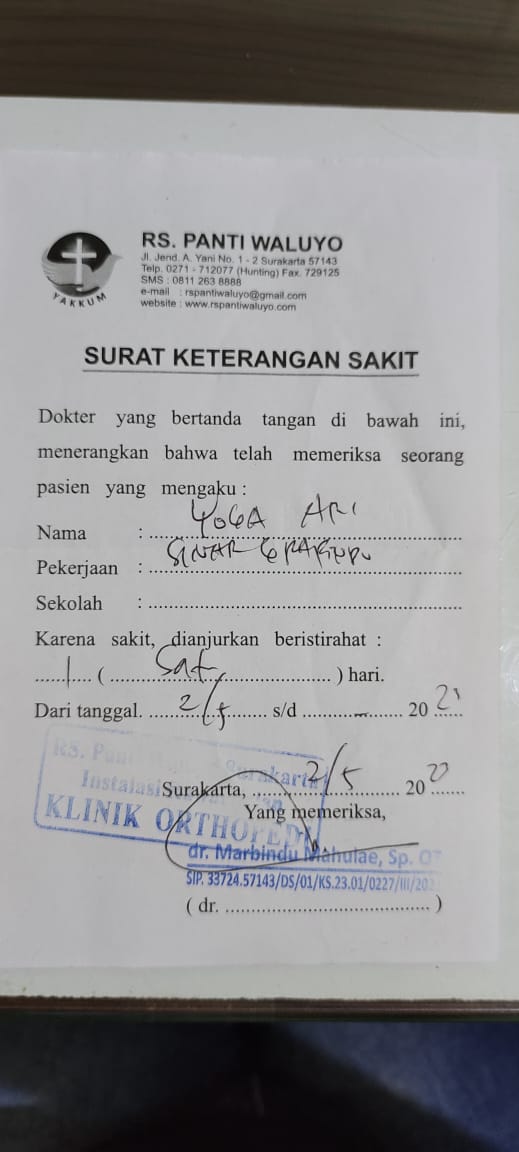 YAKKUM
RS. PANTI WALUYO
Jl. Jend. A. Yani No. 1 - 2 Surakarta 57143
Telp. 0271 - 712077 (Hunting) Fax. 729125
SMS : 0811 263 8888
e-mail : rspantiwaluyo@gmail.com
website : www.rspantiwaluyo.com
SURAT KETERANGAN SAKIT
Dokter yang bertanda tangan di bawah ini,
menerangkan bahwa telah memeriksa seorang
pasien yang mengaku :
Nama : YOGA ARI
Pekerjaan : SINAR
Sekolah :
Karena sakit, dianjurkan beristirahat :
1 ( Satu ) hari.
Dari tanggal. 2/5 s/d - 20
RS. Panti Surakarta
Instalasi
KLINIK ORTHOPEDI
Surakarta, 2/5 20
Yang memeriksa,
dr. Marbindu Mahulae, Sp. OT
SIP. 33724.57143/DS/01/KS.23.01/0227/III/202
( dr. )